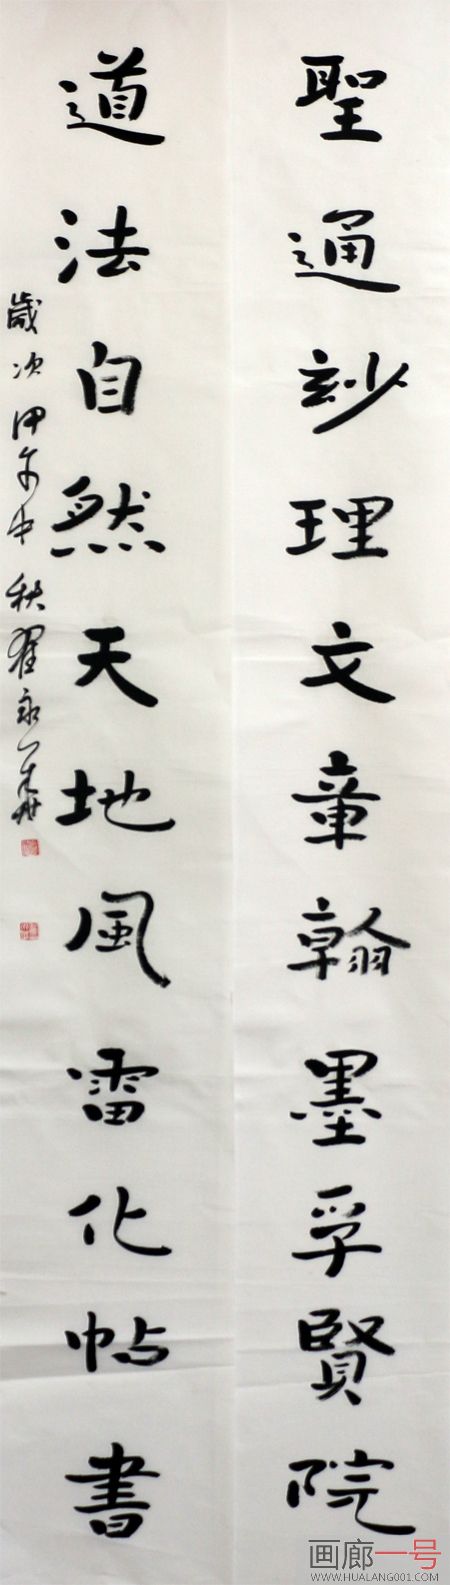 聖通玅理文章翰墨孚賢院
道法自然天地風雷化帖書
歲次甲午中秋翟永華
画廊一号
WWW.HUALANG001.COM